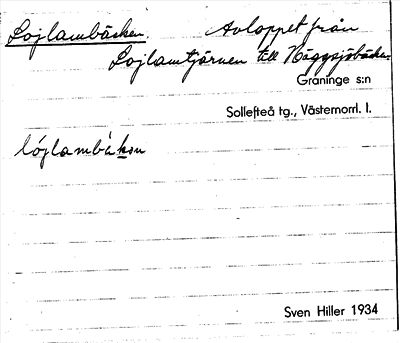 Lojlambäcken. Avloppet från
Lojlamtjärnen till Häggsjöbäcken.
Graninge s:n
Sollefteå tg., Västernorrl. l.
lójlambäkɛn
Sven Hiller 1934